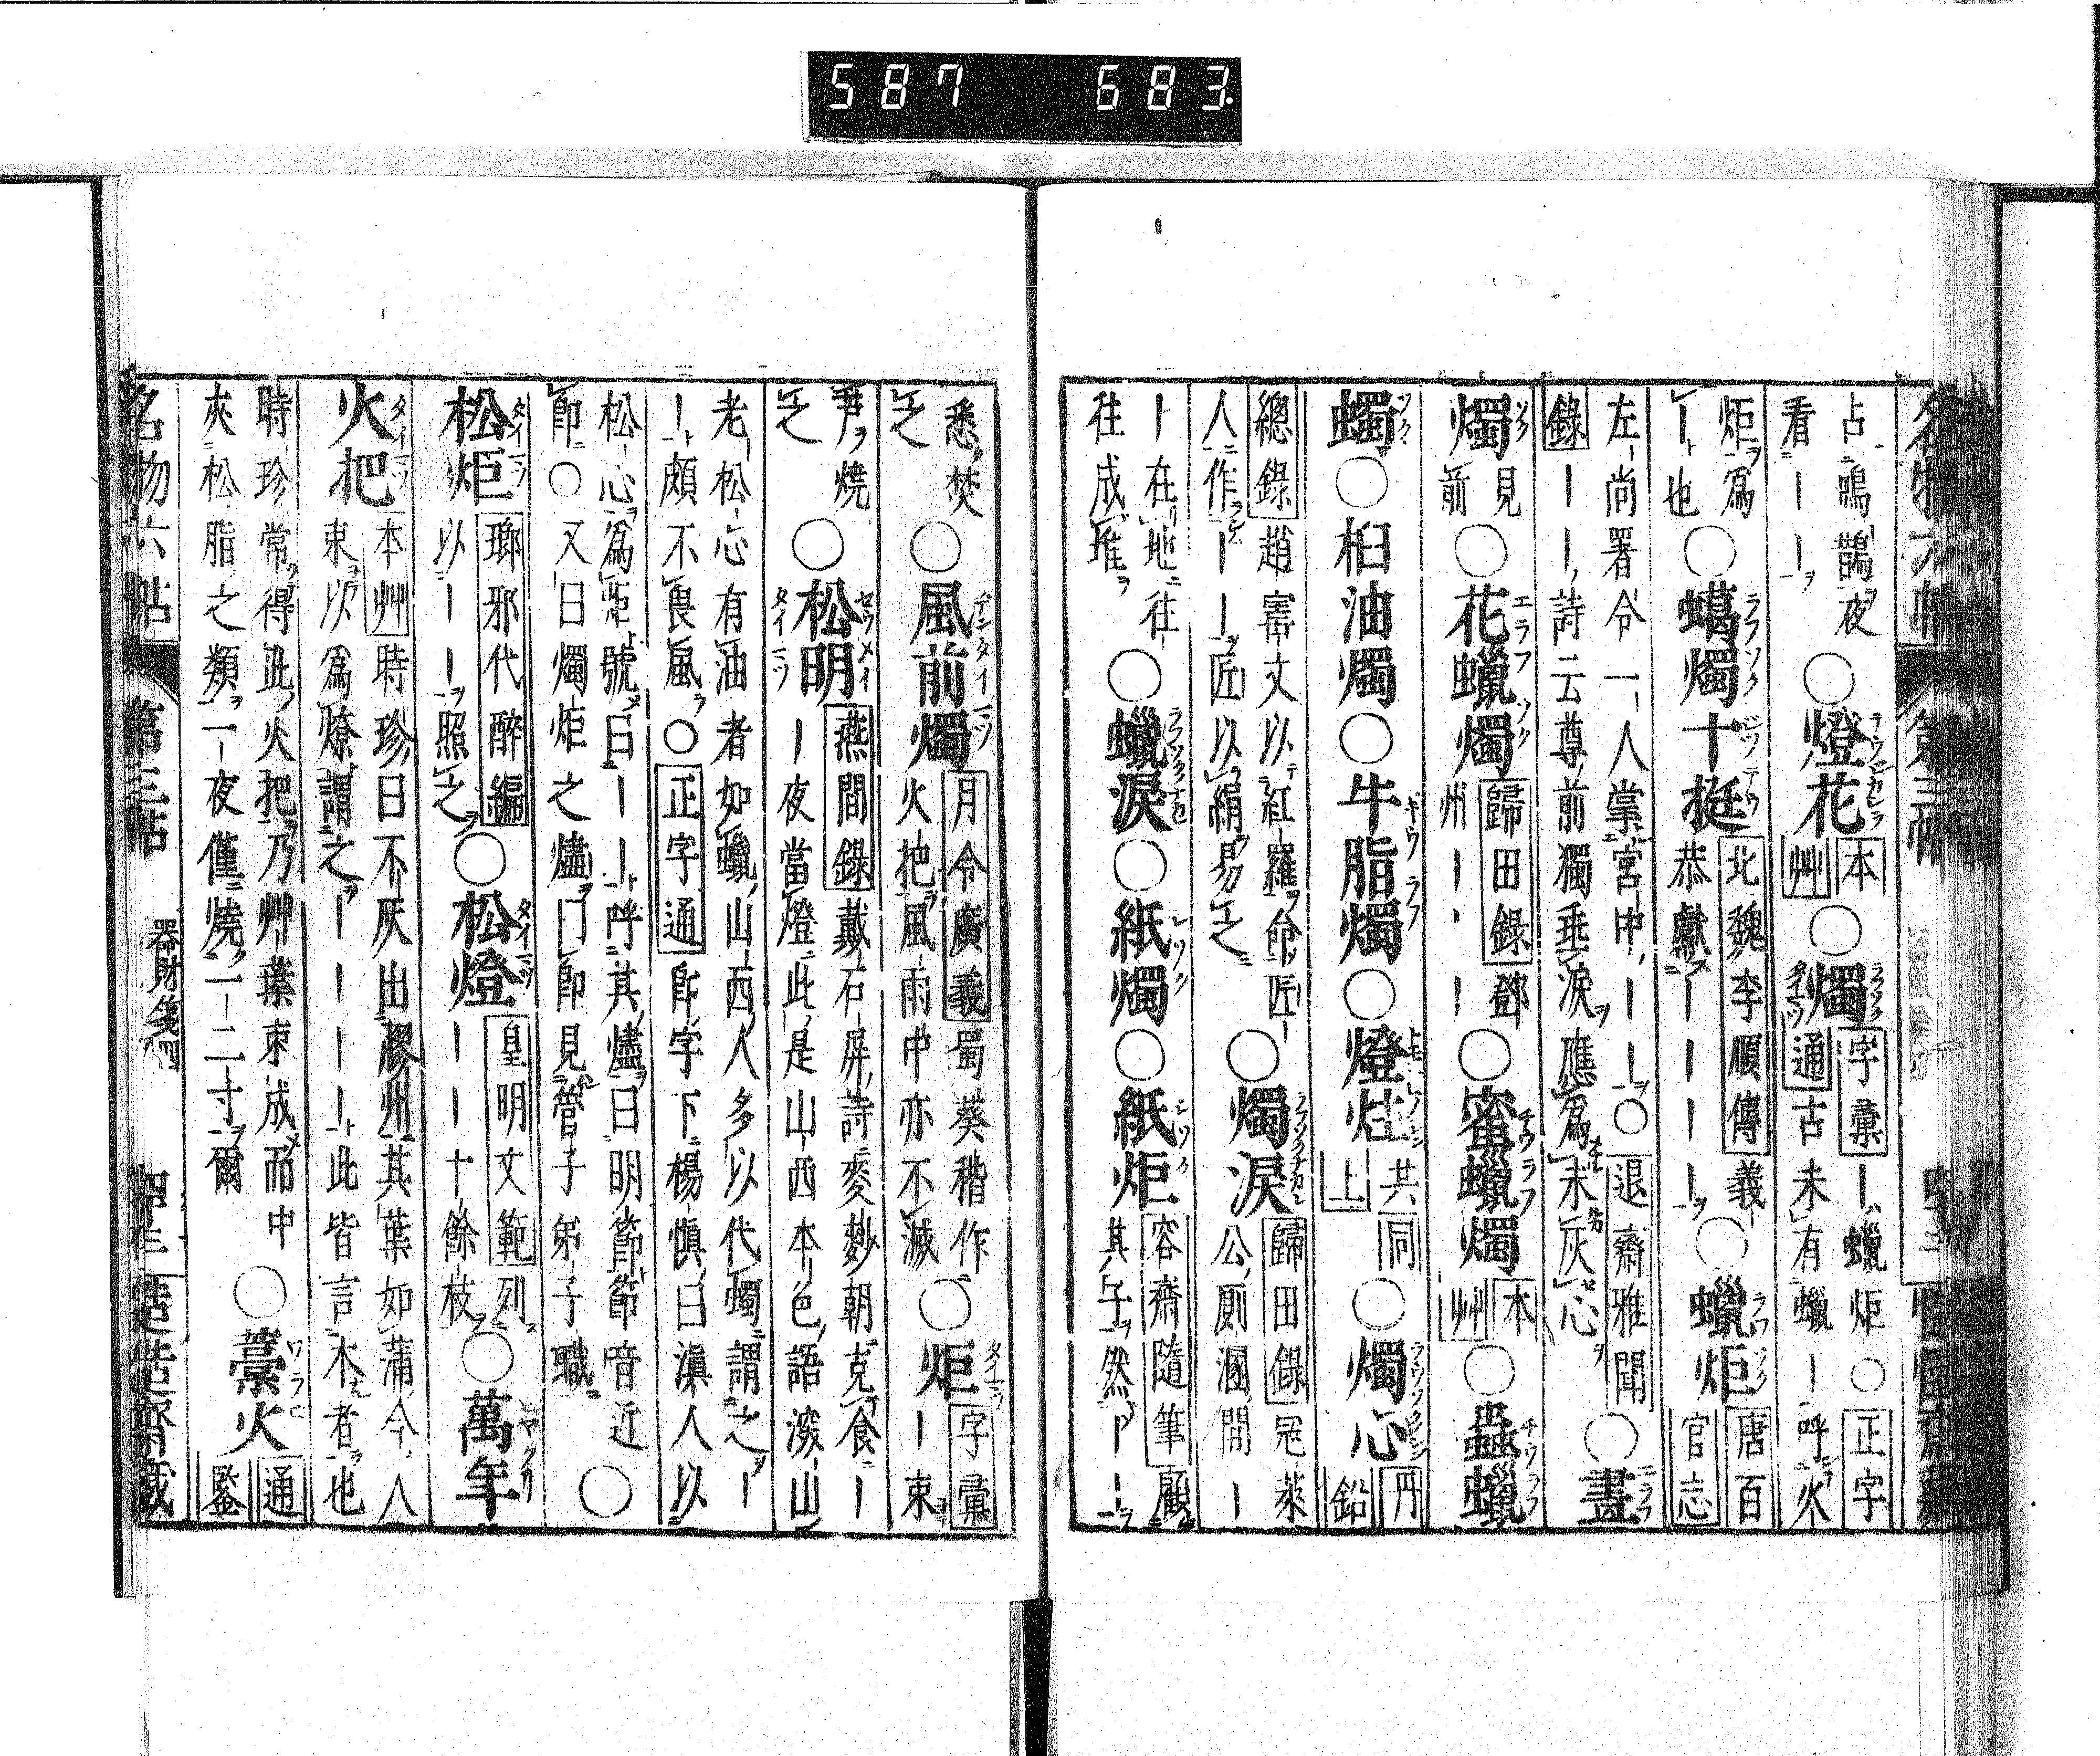 587 683
占鳴鵲夜
看ーー
○燈花
本
艸
○燭
字彙ーハ蠟炬○正字
通古未有蠟ー呼火
炬爲
ー也
○蠟燭十挺
北魏李順傳義
恭獻ーーーー
○蠟炬
唐百
官志
左尚署令一人掌宮中ーー○退齋雅聞
錄ーー詩云尊前獨垂淚應爲未灰心
○畵
燭
見
前
○花蠟燭
歸田錄鄧
州ーーー
○蜜蠟燭
本
艸
○蟲蠟
燭○桕油燭○牛脂燭○燈炷
共同
上
○燭心
丹
鉛
總錄趙審文以紅羅命匠
人作ーー匠以絹易之
○燭淚
歸田錄冦萊
公厠溷間ー
ー在地往
往成堆
○蠟淚○紙燭○紙炬
容齋隨筆顧
其子然ーー
名物六帖 第三帖 器財箋四
悉焚
之
○風前燭
月令廣義蜀葵稭作
火把風雨中亦不滅
○炬
字彙
ー束
葦燒
之
○松明
燕間錄戴石屏詩麥麨朝克食ー
ー夜當燈此是山西本色語深山
老松心有油者如蠟山西人多以代燭謂之ー
ー頗不畏風○正字通卽字下楊愼曰滇人以
松心爲炬號曰ーー呼其燼曰明節節音近
卽○又曰燭炬之燼門卽見管子弟子職
○
松炬
瑯邪代醉編
以ーー照之
○松燈
皇明文範列
ーー十餘枝
○萬年
火把
本艸時珍曰不灰出膠州其葉如蒲今人
束以爲燎謂之ーーーー此皆言木者也
時珍常得此火把乃艸葉束成而中
夾松脂之類一夜僅燒一二寸爾
○藁火
通
鑑
名物六帖 第三帖 器財箋四